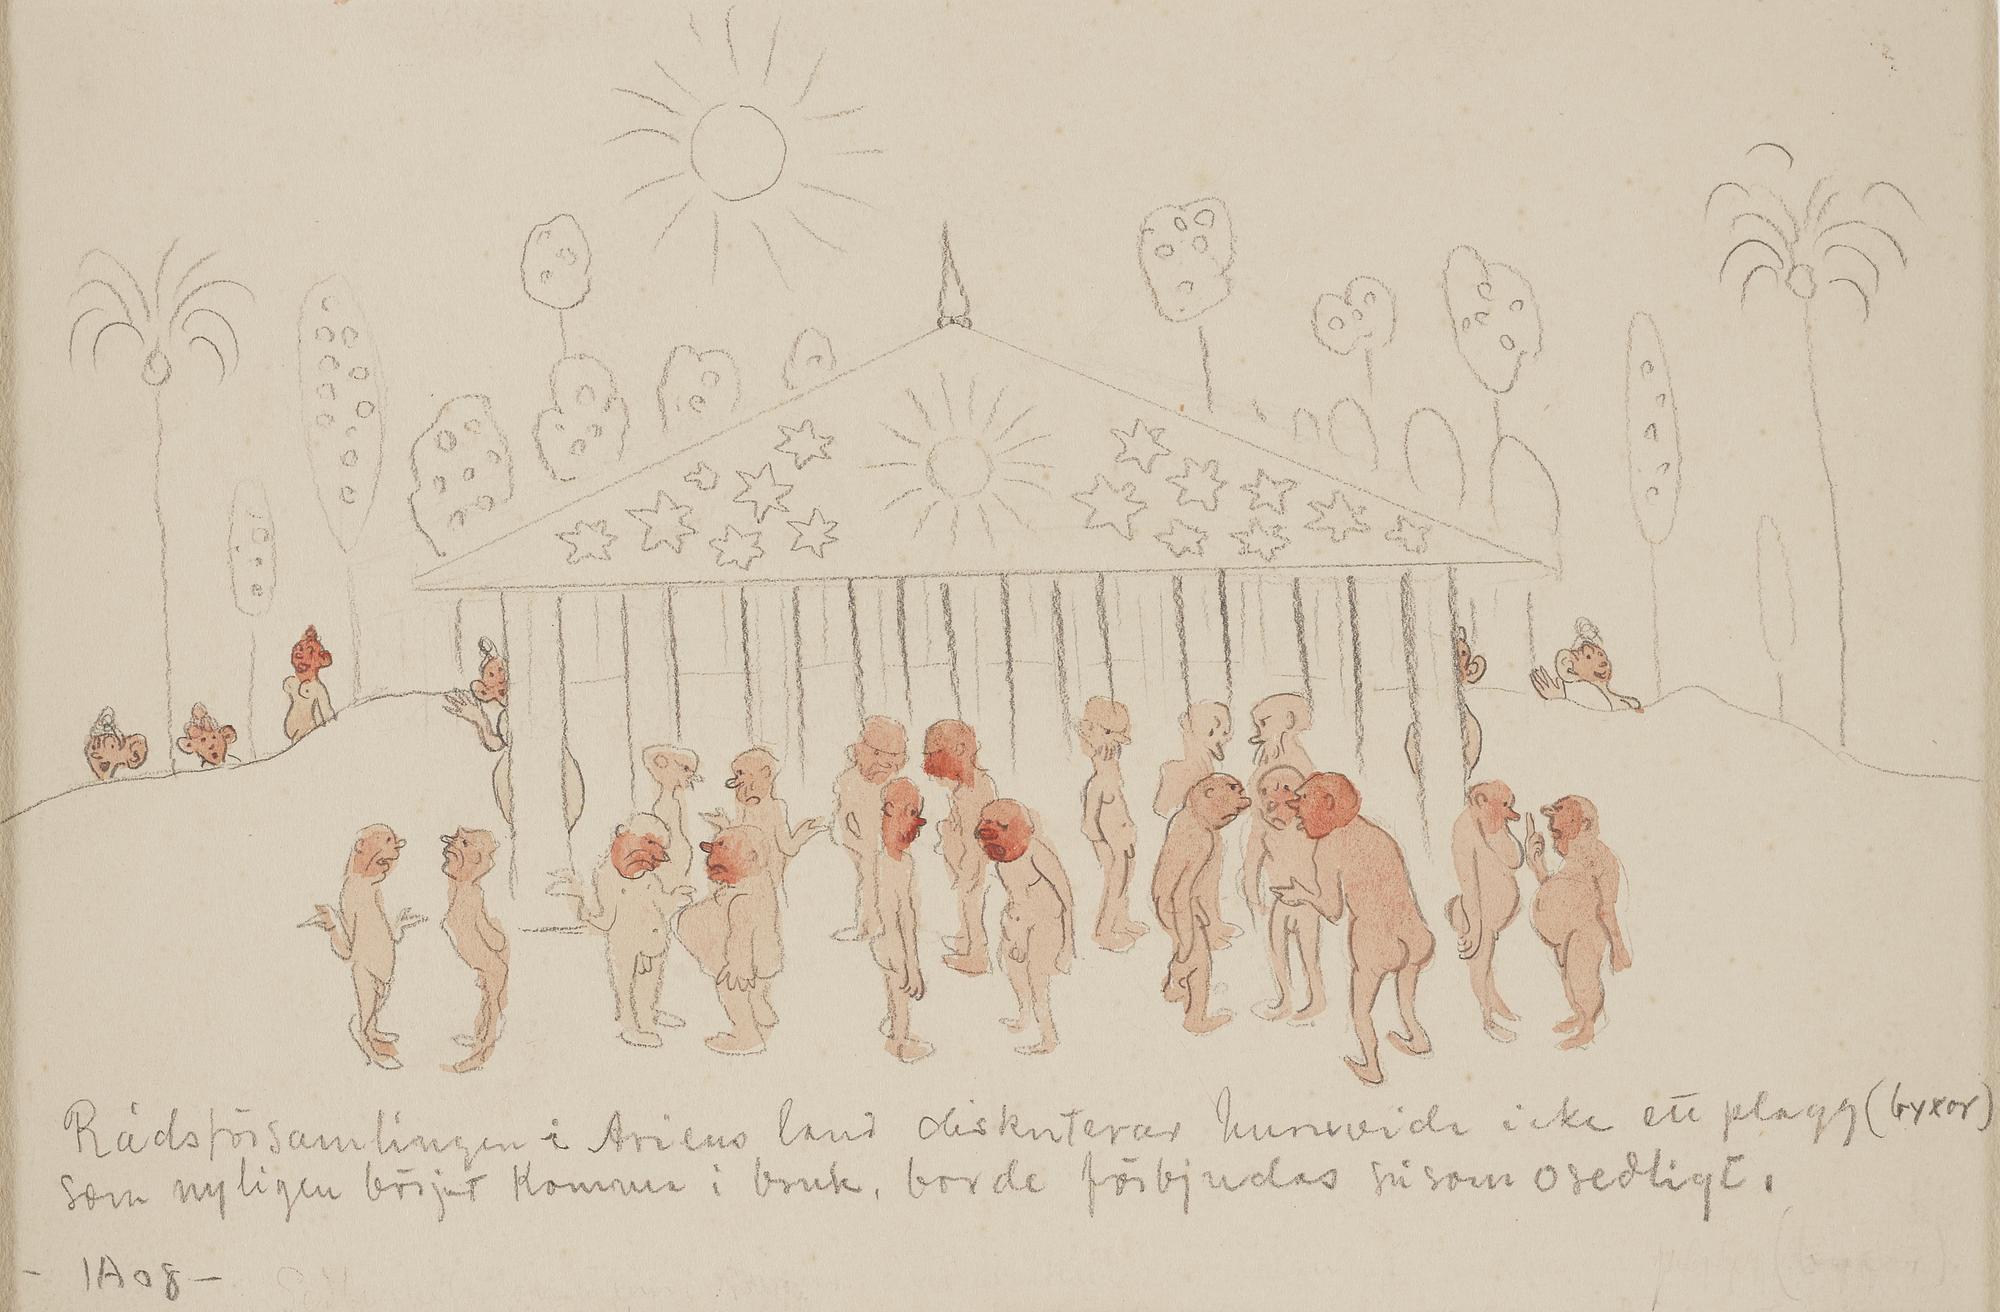 Rådsförsamlingen i Ariens land diskuterar huruvida icke ett plagg (byxor)
som nyligen börjat komma i bruk, borde förbjudas såsom osedligt.
- IA 08 -